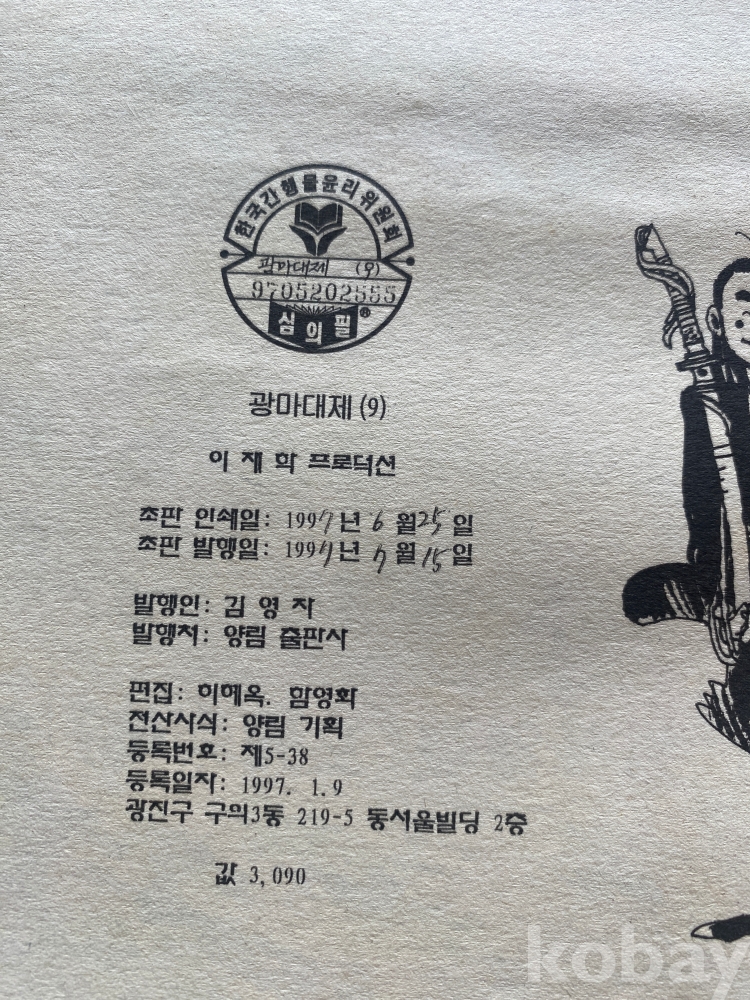 한국간행물윤리위원회
광마대제 (9)
9705202555
심의필®
광마대제 (9)
이 재 학 프로덕션
초판 인쇄일: 1997 년 6 월 25 일
초판 발행일: 1997 년 7 월 15 일
발행인: 김 영 자
발행처: 양림 출판사
편집: 허혜옥. 함영화
전산사식: 양림 기획
등록번호: 제5-38
등록일자: 1997. 1. 9
광진구 구의3동 219-5 동서울빌딩 2층
값 3,090
kobay